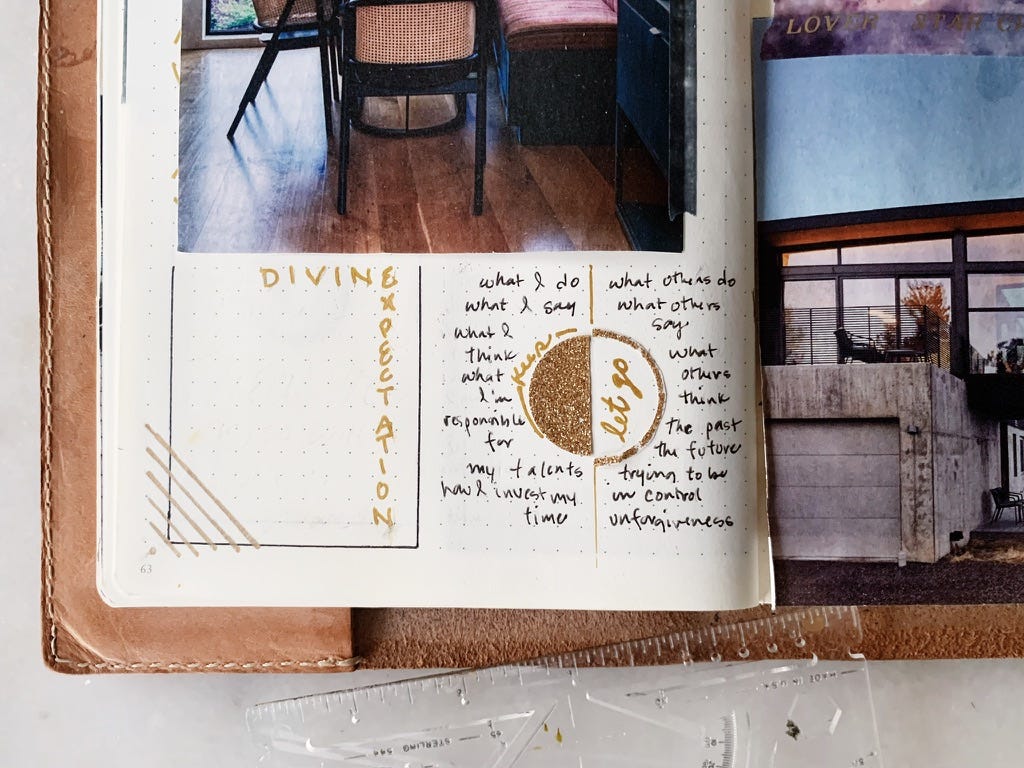 LOVER STAR
DIVINE
EXPECTATION
what I do
what I say
what I
think
what
I'm
responsible
for
my talents
how I invest my
time
keep
let go
what others do
what others
say
what
others
think
the past
the future
trying to be
in control
unforgiveness
63
MADE IN U.S.A.
STERLING 544